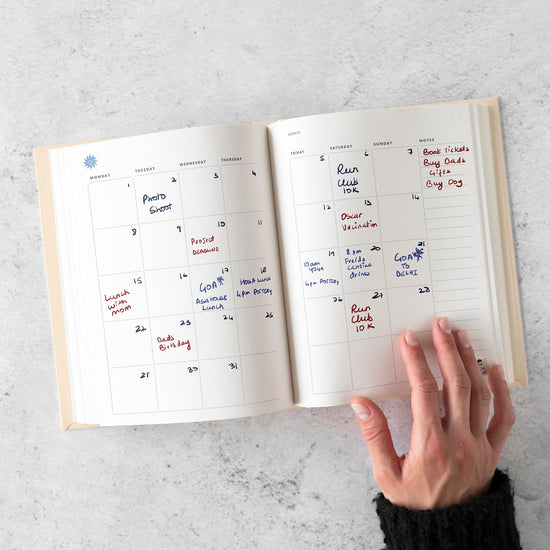 MONDAY TUESDAY WEDNESDAY THURSDAY
1 2 3 4
Photo
Shoot
8 9 10 11
Project
DEADLINE
15 16 17 18
Lunch
with
MOM
GOA
Lunch
4pm POTTERY
22 23 24 25
Dads
Birthday
29 30 31
MONTH
FRIDAY SATURDAY SUNDAY NOTES
5 6 7
Run
Club
10K
Book Tickets
Buy Dads
Gifts
Buy Dog
12 13 14
Oscar
Vaccination
19 20 21
10am
YOGA
4pm POTTERY
8pm
Freida
Cantina
drinks
GOA
TO
DELHI
26 27 28
Run
Club
10K